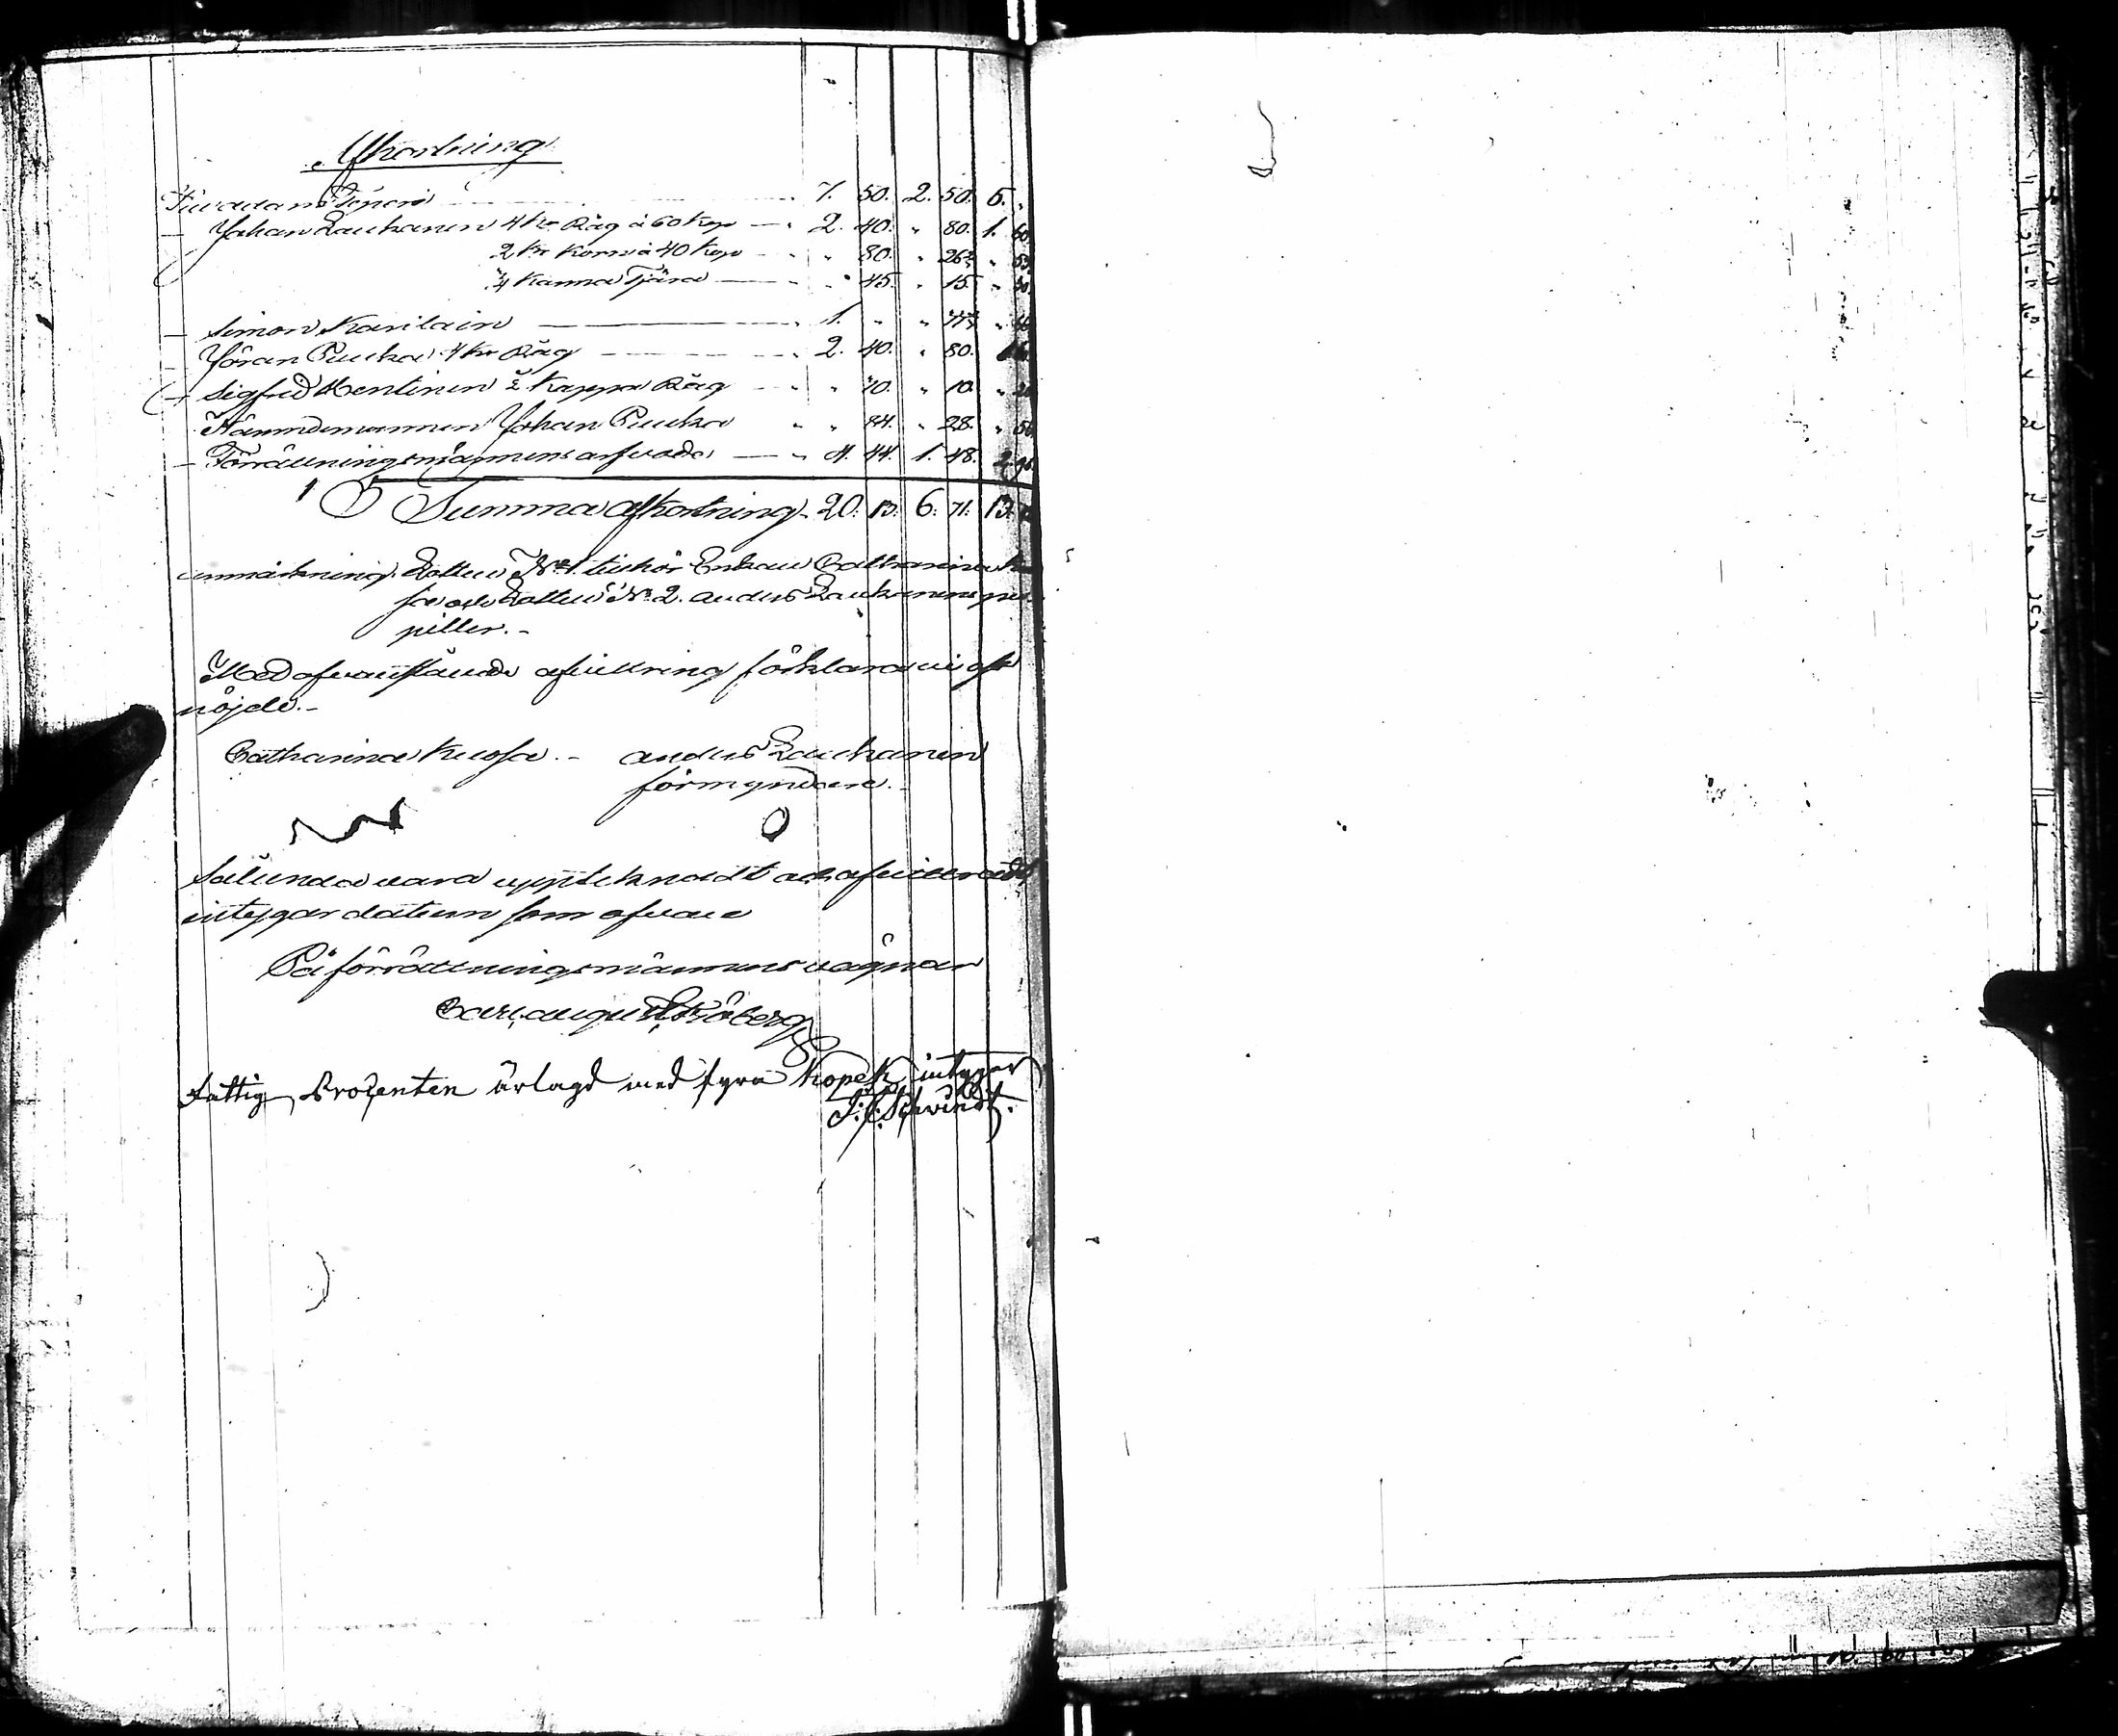 Afkortning
7. 50. 2. 50. 5. „
— Johan Laukanen 4 kr Råg à 60 Kop — 2. 40. „ 80. 1. 60.
2 kr Korn à 40 Kop — „ 80. „ 26⅔ „ 53
¼ Kanna Tjära — „ 45. „ 15. „ 30.
— Simon Karilain — 1. „ „
— Jöran Puuka 4 kr Råg — 2. 40. „ 80. 1. 60.
— Sigfrid Mentinen ½ Kappa Råg — „ 10.
Nämndemannen Johan Puuka „ 84. „ 28. „ 56
— Förrättningsmännens arfvode — 4. 44. 1. 48. 2. 96.
Summa afkortning. 20. 13. 6. 71. 13.
Anmärkning. Lotten N:o 1. tillhör Enkan Catharina Kuo
sa och Lotten N:o 2. Anders Laukanens pu
piller. –
Med ofvanstående afvittring förklara vi oss
nöjde. –
Catharina Kuosa. – Anders Laukanen
förmyndare. –
Sålunda vara upptecknadt och afvittradt
intygar datum som ofvan
På förrättningsmännens vägnar
Carl August Ståberg
Fattig Procenten ärlagd med fyra Kopek intygar
J. F. Schvindt.